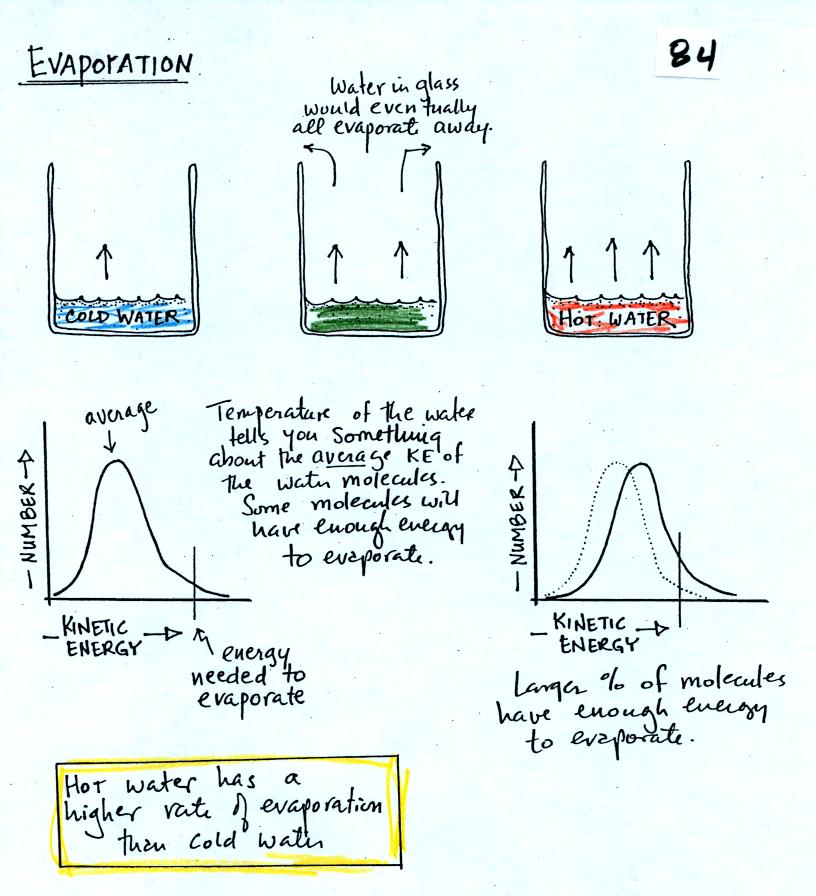 EVAPORATION
84
Water in glass
would eventually
all evaporate away.
COLD WATER
HOT WATER
average
Temperature of the water
tells you something
about the average KE of
the water molecules.
Some molecules will
have enough energy
to evaporate.
NUMBER
KINETIC
ENERGY
energy
needed to
evaporate
NUMBER
KINETIC
ENERGY
Larger % of molecules
have enough energy
to evaporate.
Hot water has a
higher rate of evaporation
than cold water